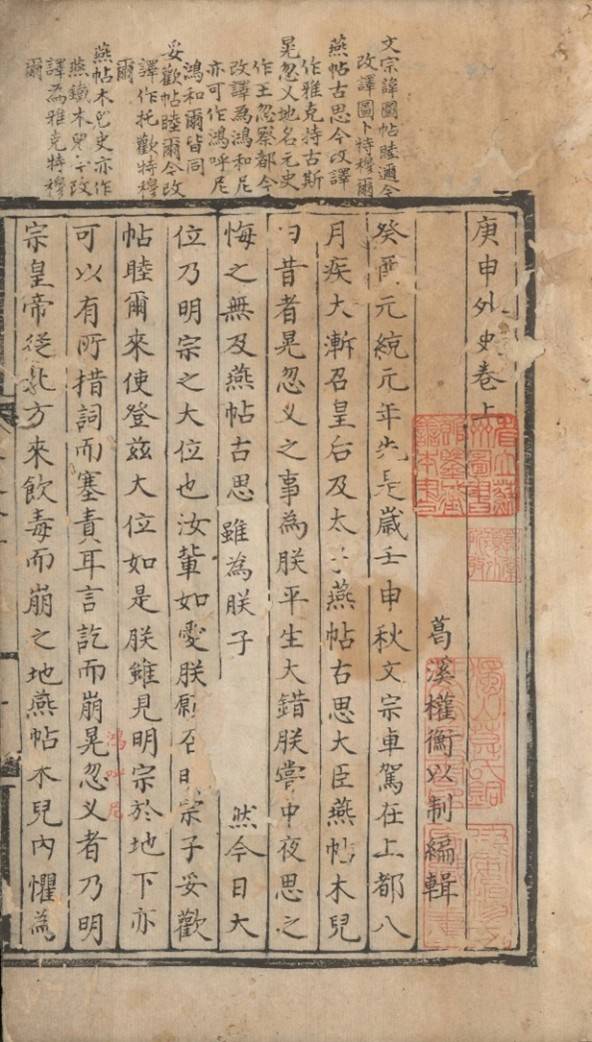 文宗諱圖帖睦邇今
改譯圖卜特穆爾
燕帖古思今改譯
作雅克特古斯
晃忽乂地名元史
作王忽察都今
改譯爲鴻和尼
亦可作鴻呼尼
鴻和爾皆同
妥歡帖睦爾今改
譯作托歡特穆
爾
燕帖木兒史亦作
燕鐵木兒今改
譯爲雅克特穆
爾
庚申外史卷上
葛溪權衡以制編輯
癸酉元統元年先是歲壬申秋文宗車駕在上都八
月疾大漸召皇后及太子燕帖古思大臣燕帖木兒
曰昔者晃忽乂之事為朕平生大錯朕嘗中夜思之
悔之無及燕帖古思雖為朕子然今日大
位乃明宗之大位也汝輩如愛朕願召明宗子妥歡
帖睦爾來使登玆大位如是朕雖見明宗於地下亦
可以有所措詞而塞責耳言訖而崩晃忽乂者乃明
鴻呼尼
宗皇帝從北方來飲毒而崩之地燕帖木兒內懼為